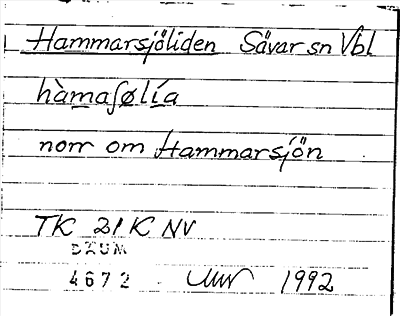 Hammarsjöliden Sävar sn Vbl
hàmaʃølía
norr om Hammarsjön
TK 21 K NV
DAUM
4672 UMW 1992